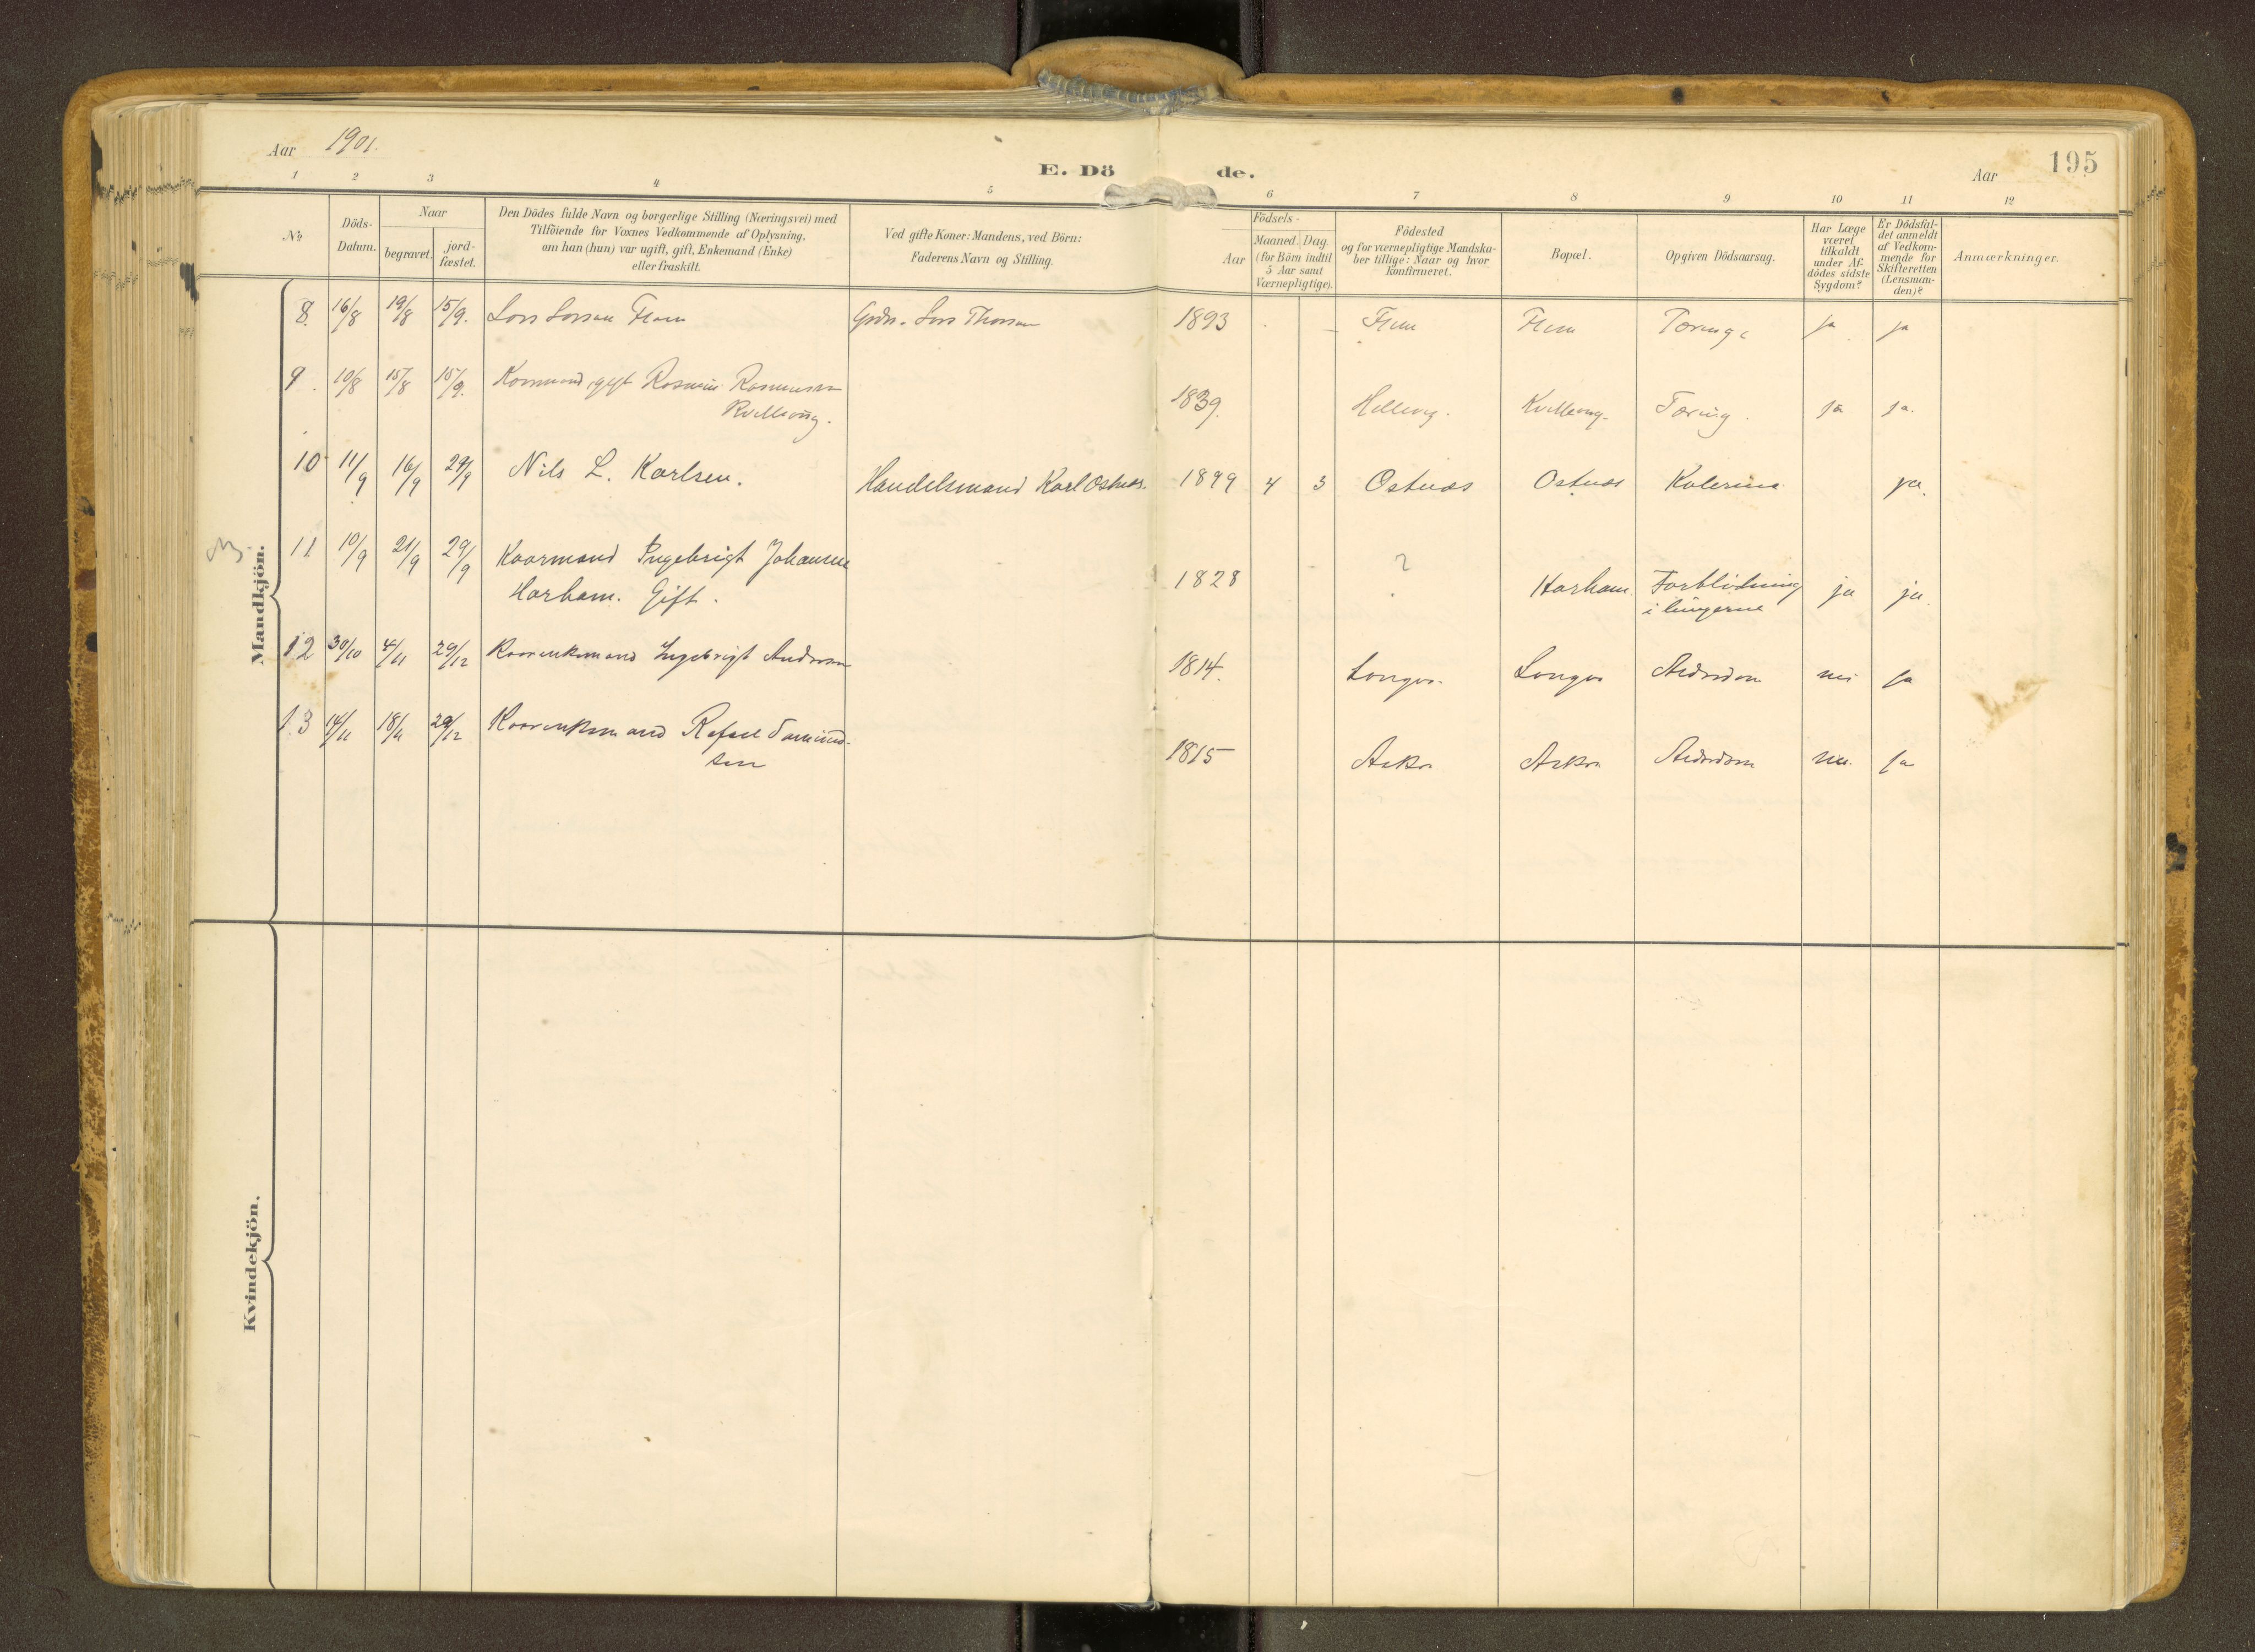 Aar 1901.
E. Dö de.
Aar 195
1 2 3 4 5 6 7 8 9 10 11 12
No
Döds-Datum.
Naar
begravet. jord-fæstet.
Den Dödes fulde Navn og borgerlige Stilling (Næringsvei) med
Tilföiende for Voxnes Vedkommende af Oplysning,
om han (hun) var ugift, gift, Enkemand (Enke)
eller fraskilt.
Ved gifte Koner: Mandens, ved Börn:
Faderens Navn og Stilling.
Födsels-
Aar Maaned. Dag.
(for Börn indtil
5 Aar samt
Værnepligtige).
Födested
og for værnepligtige Mandska-
ber tillige: Naar og hvor
konfirmeret.
Bopæl.
Opgiven Dödsaarsag.
Har Læge
været
tilkaldt
under Af-
dödes sidste
Sygdom?
Er Dödsfal-
det anmeldt
af Vedkom-
mende for
Skifteretten
(Lensman-
den)?
Anmærkninger.
Mandkjön.
8. 16/8 19/8 15/9. Lars Larsen Flem Grdr. Lars Thorsen 1893 Flem Flem Tæring ja ja
9. 10/8 15/8 15/9. gift Rasmus Rasmussen
Kvillevig. 1839. Hellevig. Kvillevig. Tæring. ja ja.
10 11/9 16/9 29/9 Nils L. Karlsen. Handelsmand Karl Ostnæs. 1899 4 3 Ostnæs Ostnæs Kolerina ja.
11 10/9 21/9 29/9 Kaarmand Ingebrigt Johansen
Harham. Gift. 1828 ? Harham. Forblödning
i lungerne ja ja.
12 30/10 4/11 29/12 Kaarenkemand Ingebrigt Andersen 1814. Longva. Longva Alderdom nei ja
13 14/11 18/11 29/12 Kaarenkemand Rafael Samund-
sen 1815 Askø Alderdom nei. ja
Kvindekjön.